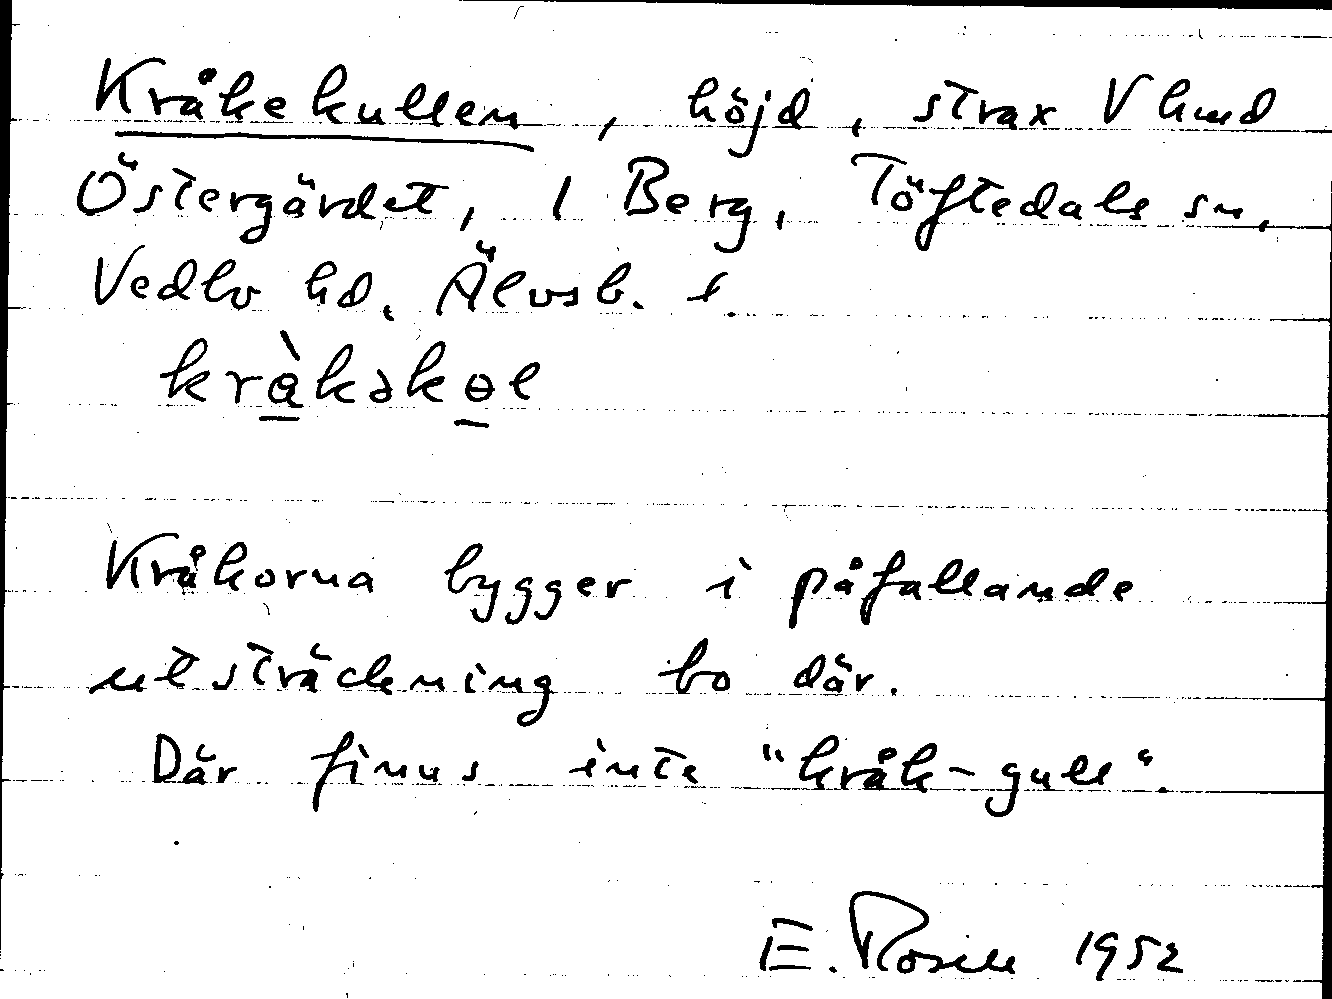 Kråkekullen, höjd, strax V hmd
Östergärdet, 1 Berg, Töftedals sn,
Vedbo hd. Älvsb. l.
kràkəkɵl
Kråkorna bygger i påfallande
utsträckning bo där.
Där finns inte "kråk-gull".
E. Rosell 1952